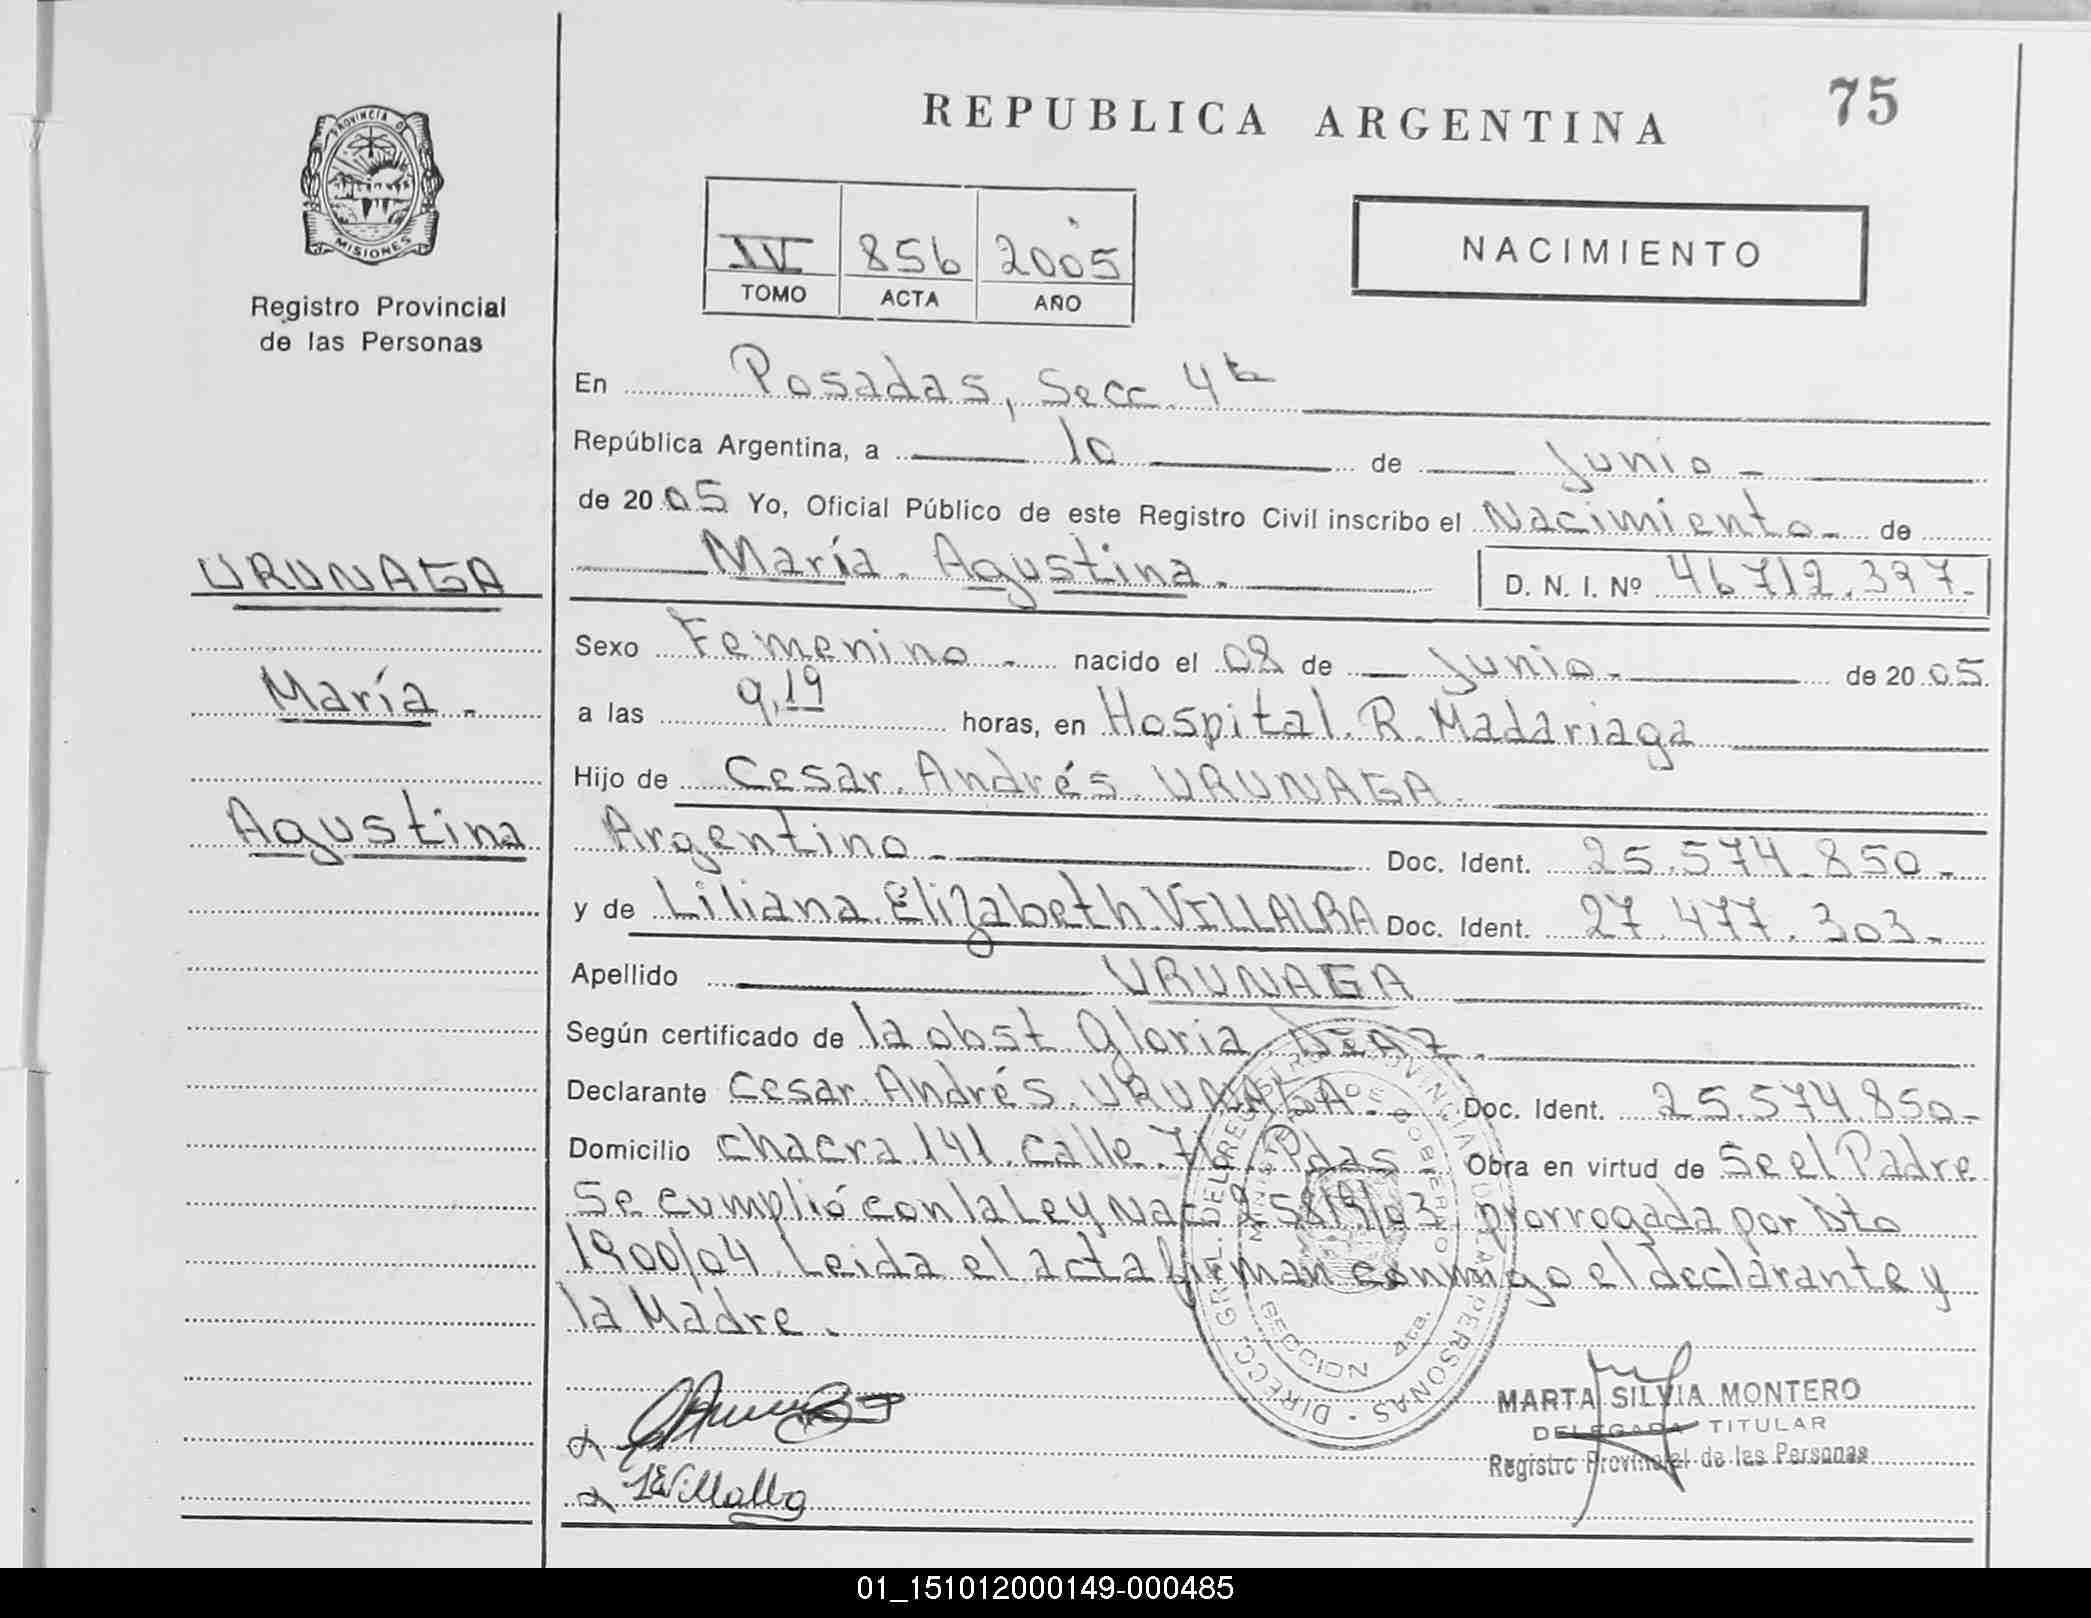 75
REPUBLICA ARGENTINA
PROVINCIA D
MISIONES
Registro Provincial
de las Personas
IV 856 2005
TOMO ACTA AÑO
NACIMIENTO
En Posadas, Secc. 4ta
República Argentina, a 10 de Junio
de 2005 Yo, Oficial Público de este Registro Civil inscribo el Nacimiento de
María Agustina. D. N. I. Nº 46712.397.
URUNAGA
María
Agustina
Sexo Femenino nacido el 08 de Junio de 2005.
a las 9,19 horas, en Hospital R. Madariaga
Hijo de Cesar Andrés URUNAGA
Argentino Doc. Ident. 25.574.850
y de Liliana Elizabeth VILLALBA Doc. Ident. 27.477.303
Apellido URUNAGA
Según certificado de la obst Gloria DIAZ
Declarante Cesar Andrés URUNAGA Doc. Ident. 25.574.850
Domicilio chacra 141 calle Pdas Obra en virtud de Se el Padre
Se cumplió con la Ley Nac 25819/03 prorrogada por Dto
1900/04 Leida el acta firman conmigo el declarante y
la Madre.
DIRECC. GRL. DEL REGISTRO PROVINCIAL DE LAS PERSONAS
MINISTERIO DE GOBIERNO
SECCION 4ta.
Villalba
MARTA SILVIA MONTERO
DELEGADA TITULAR
Registro Provincial de las Personas
01_151012000149-000485